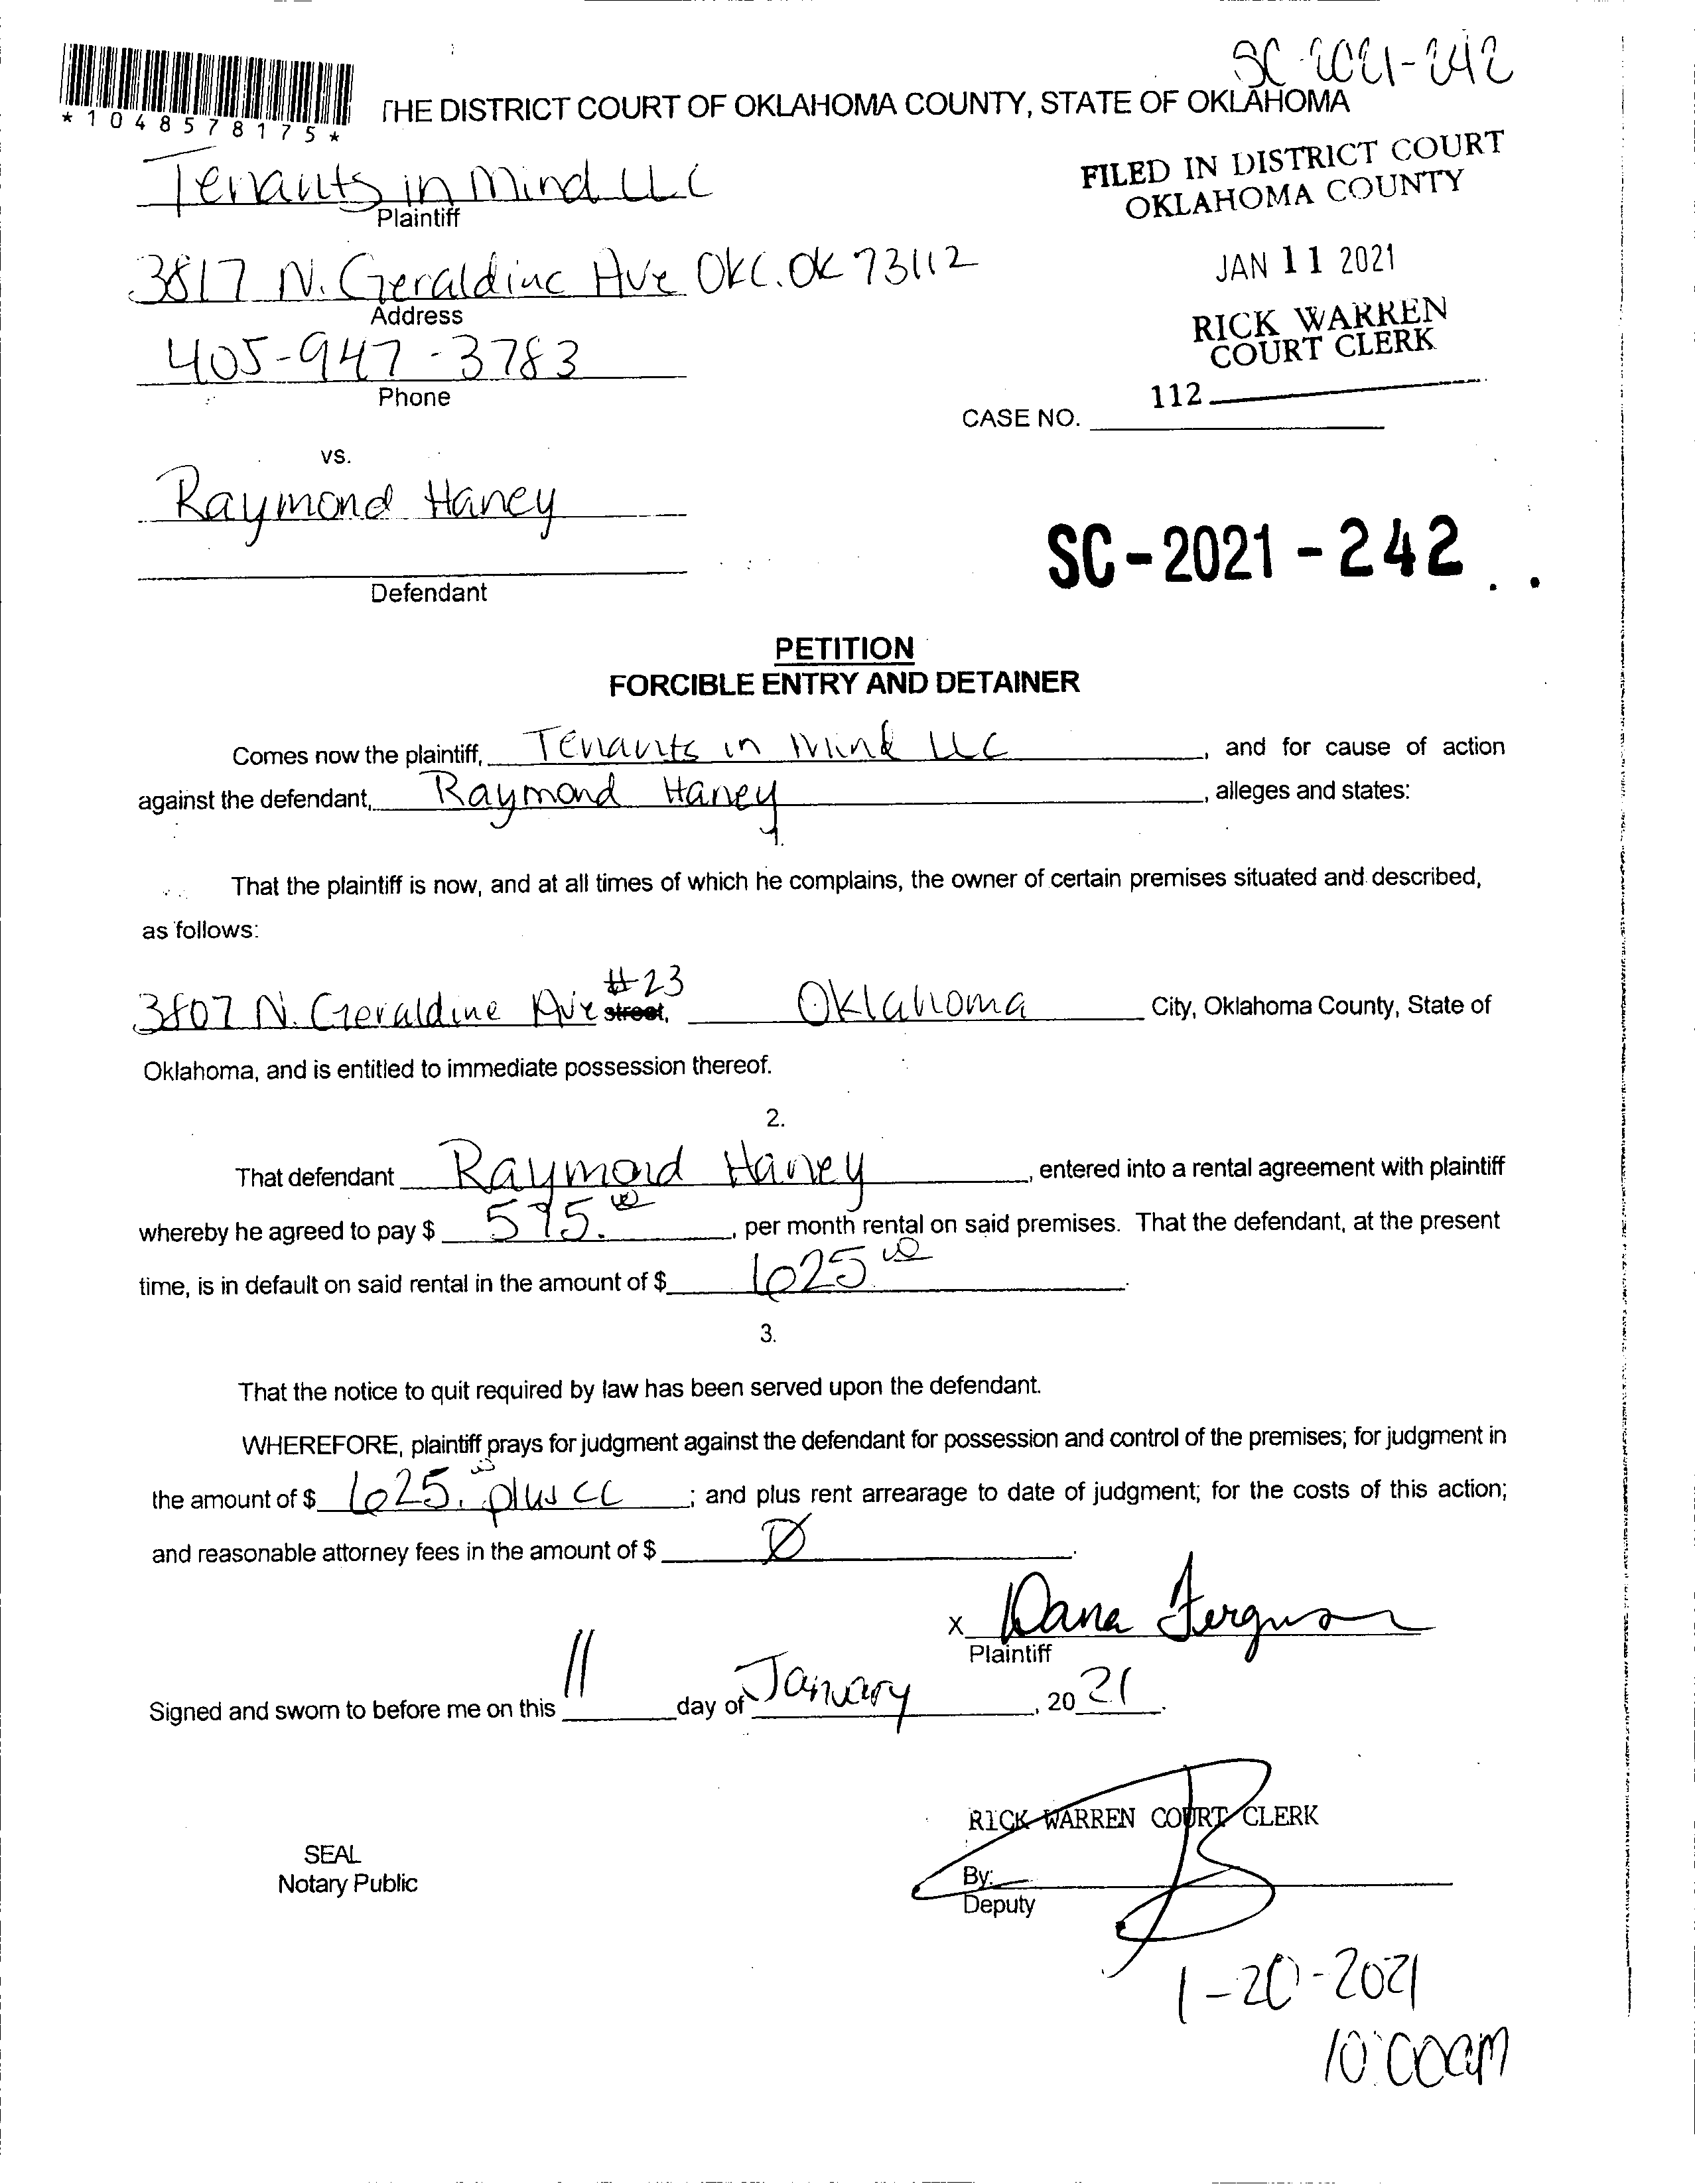 SC-2021-242
*1048578175*
THE DISTRICT COURT OF OKLAHOMA COUNTY, STATE OF OKLAHOMA
Tenants in Mind LLC
Plaintiff
FILED IN DISTRICT COURT
OKLAHOMA COUNTY
3817 N. Geraldine Ave OKC. OK 73112
Address
JAN 11 2021
405-947-3783
Phone
RICK WARREN
COURT CLERK
112
CASE NO.
vs.
Raymond Haney
Defendant
SC-2021-242
PETITION
FORCIBLE ENTRY AND DETAINER
Comes now the plaintiff, Tenants in Mind LLC, and for cause of action
against the defendant, Raymond Haney, alleges and states:
1.
That the plaintiff is now, and at all times of which he complains, the owner of certain premises situated and described,
as follows:
3807 N. Geraldine Ave #23 street, Oklahoma City, Oklahoma County, State of
Oklahoma, and is entitled to immediate possession thereof.
2.
That defendant Raymond Haney, entered into a rental agreement with plaintiff
whereby he agreed to pay $ 575.00, per month rental on said premises. That the defendant, at the present
time, is in default on said rental in the amount of $ 625 00.
3.
That the notice to quit required by law has been served upon the defendant.
WHEREFORE, plaintiff prays for judgment against the defendant for possession and control of the premises; for judgment in
the amount of $ 625.00 plus CC; and plus rent arrearage to date of judgment; for the costs of this action;
and reasonable attorney fees in the amount of $ Ø.
x Dana Ferguson
Plaintiff
Signed and sworn to before me on this 11 day of January, 2021.
RICK WARREN COURT CLERK
SEAL
Notary Public
By:
Deputy
1-20-2021
10:00am